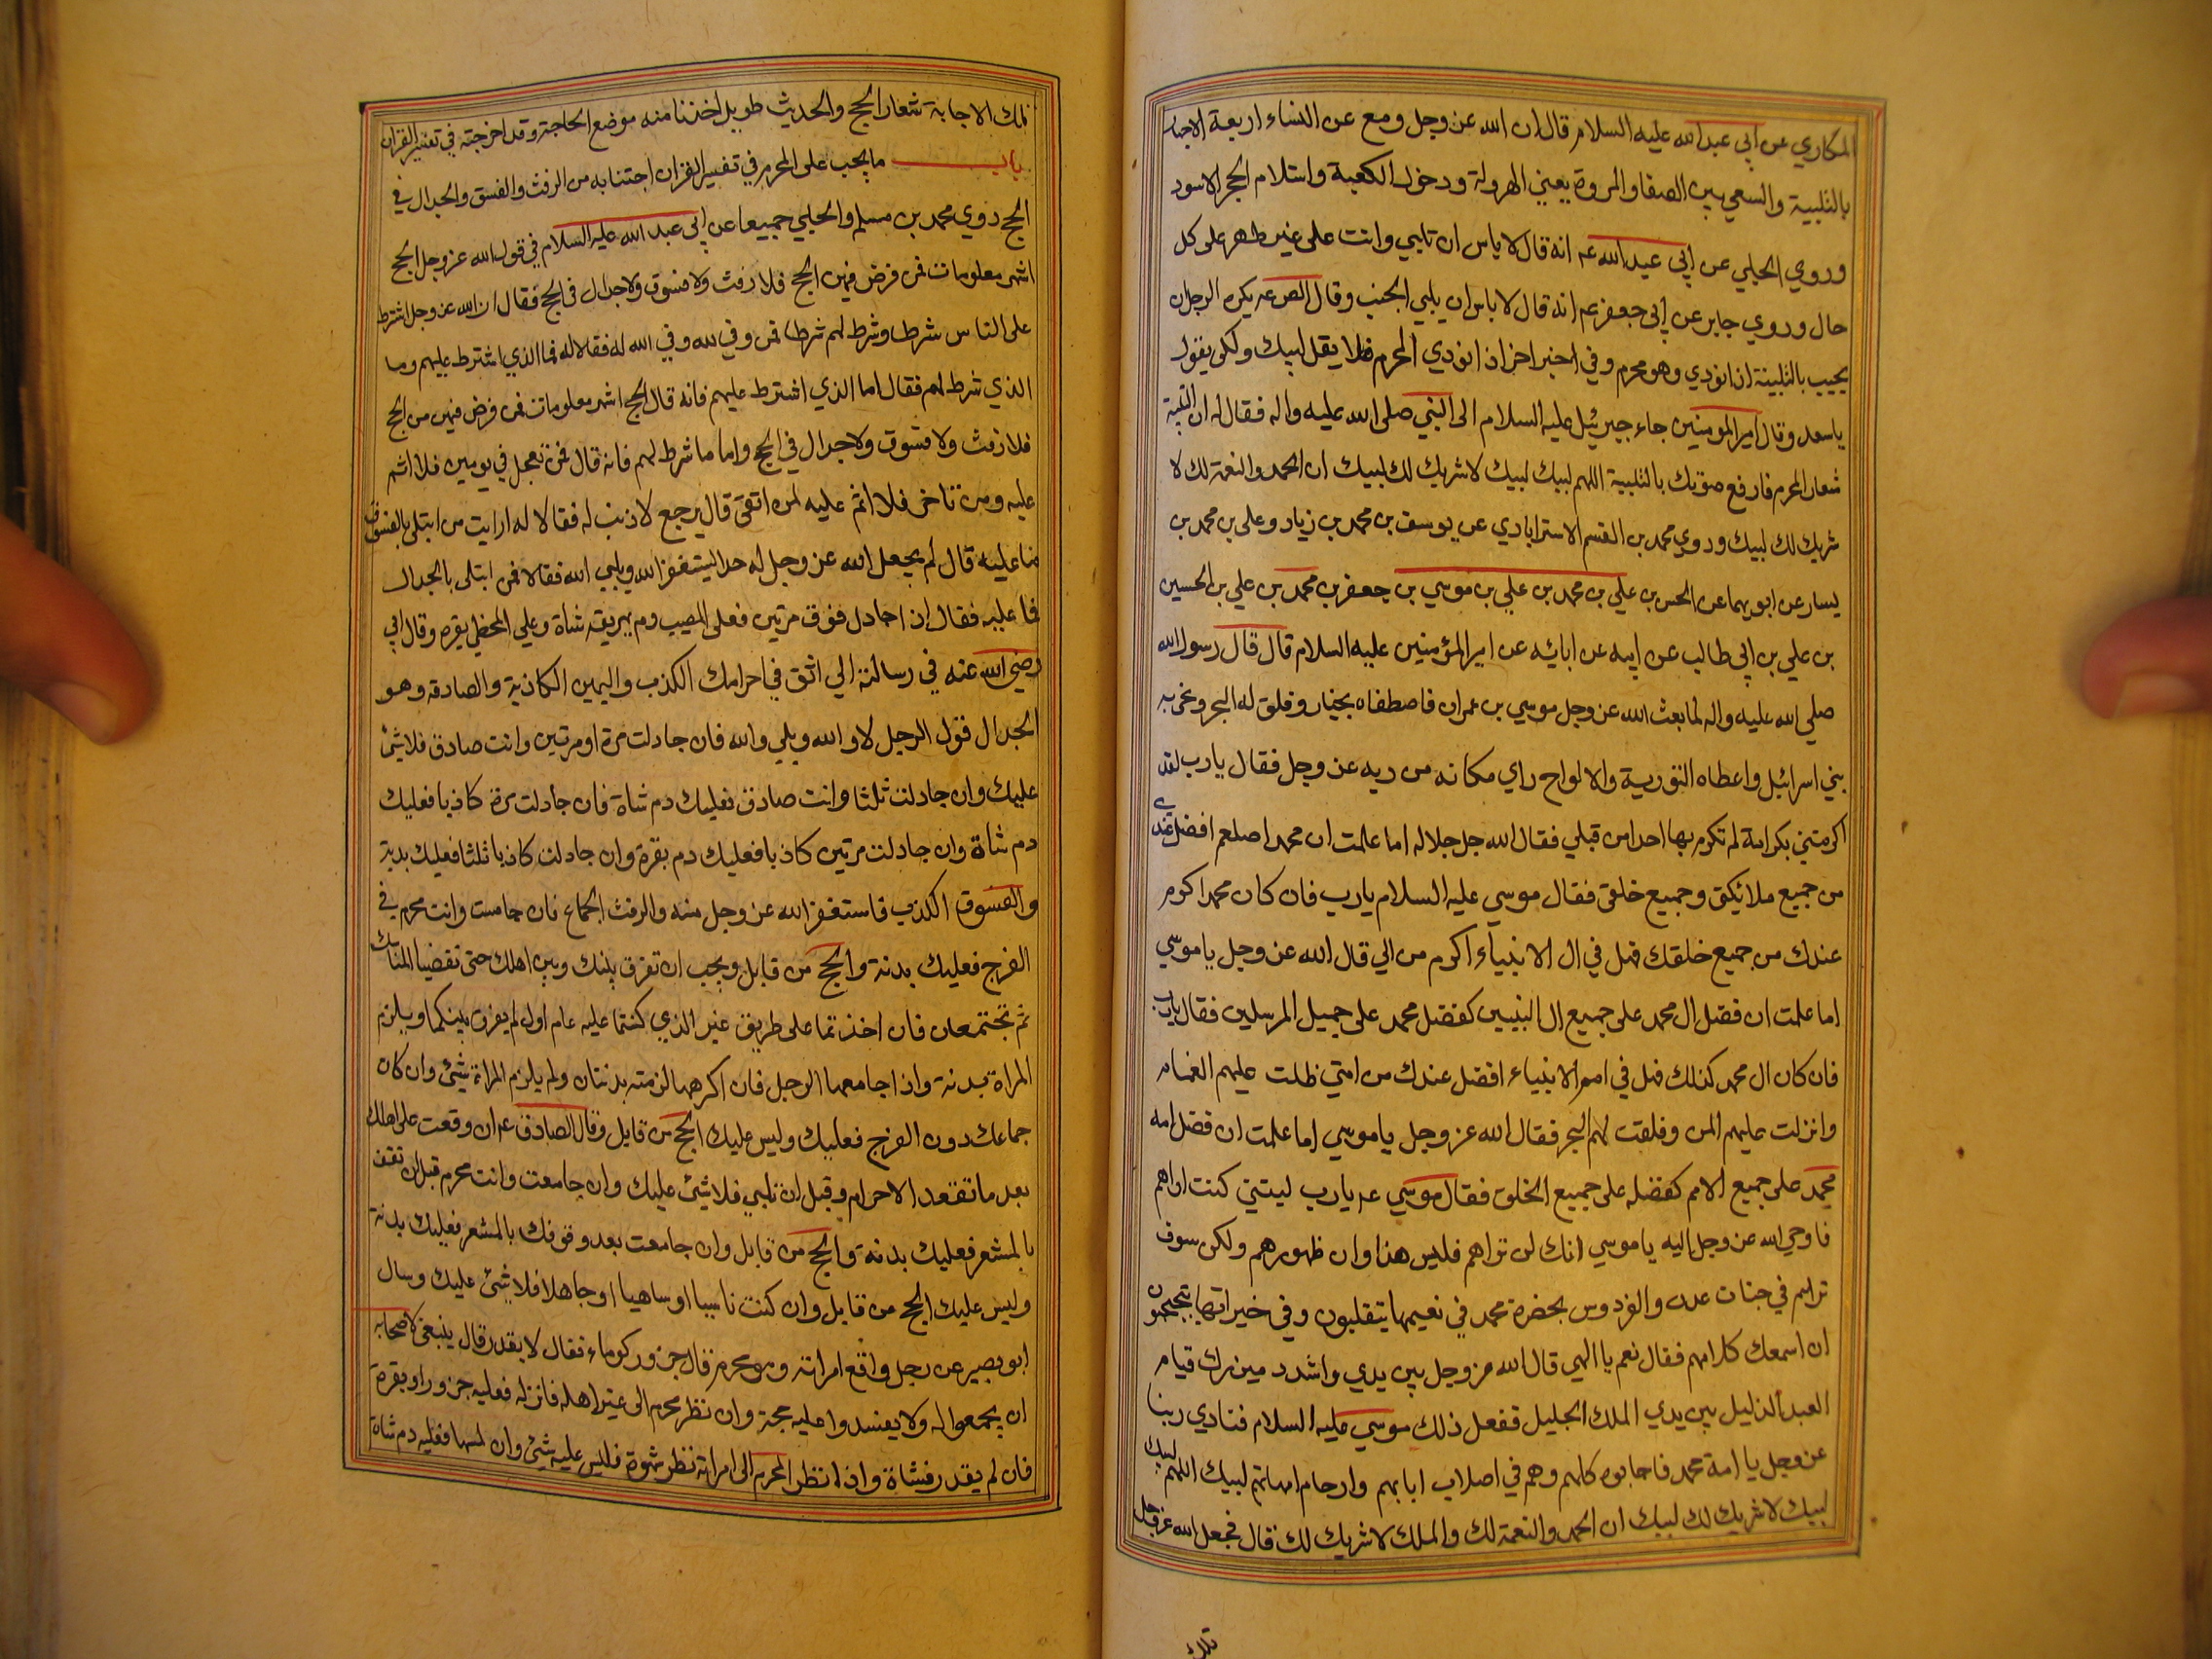 المكاري عن ابي عبد الله عليه السلام قال ان الله عز وجل وضع عن النساء اربعة الاجهار
بالتلبية والسعي بين الصفا والمروة يعني الهرولة ودخول الكعبة واستلام الحجر الاسود
وروي الحلبي عن ابي عبد الله عه انه قال لا باس ان تلبي وانت على غير طهر على كل
حال وروي جابر عن ابي جعفر عم انه قال لا باس ان يلبي الجنب وقال الص عه يكره الرجل ان
يجيب بالتلبية اذا نودي وهو محرم وفي اخبر اخر اذا نودي المحرم فلا يقل لبيك ولكن يقول
يا سعد وقال امير المومنين جاء جبرئيل عليه السلام الى النبي صلى الله عليه واله فقال له ان التلبية
شعار المحرم فارفع صوتك بالتلبية اللهم لبيك لبيك لا شريك لك لبيك ان الحمد والنعمة لك لا
شريك لك لبيك وروي محمد بن القسم الاسترابادي عن يوسف بن محمد بن زياد وعلي بن محمد بن
يسار عن ابويهما عن الحسن بن علي بن محمد بن علي بن موسي بن جعفر بن محمد بن علي بن الحسين
بن علي بن ابي طالب عن ابيه عن ابائه عن امير المؤمنين عليه السلام قال قال رسول الله
صلي الله عليه واله لما بعث الله عز وجل موسي بن عمران فاصطفاه نجيا وفلق له البحر ونجى به
بني اسرائيل واعطاه التورية والالواح راي مكانه من ربه عز وجل فقال يا رب لقد
اكرمتني بكرامة لم تكرم بها احدا من قبلي فقال الله جل جلاله اما علمت ان محمدا صلعم افضل عندي
من جميع ملائكتي وجميع خلقي فقال موسي عليه السلام يا رب فان كان محمد اكرم
عندك من جميع خلقك فهل في ال الانبياء اكرم من الي قال الله عز وجل يا موسي
اما علمت ان فضل ال محمد على جميع ال النبيين كفضل محمد على جميل المرسلين فقال يا رب
فان كان ال محمد كذلك فهل في امم الانبياء افضل عندك من امتي ظلت عليهم الغمام
وانزلت عليهم المن وفلقت لهم البحر فقال الله عز وجل يا موسي اما علمت ان فضل امة
محمد على جميع الامم كفضله على جميع الخلق فقال موسي عه يا رب ليتني كنت اراهم
فاوحي الله عز وجل اليه يا موسي انك لن تراهم فليس هذا وان ظهورهم ولكن سوف
تراهم في جنات عدن والفردوس بحضرة محمد في نعيمها يتقلبون وفي خيراتها يتبجحون
ان اسمعك كلامهم فقال نعم يا الهي قال الله عز وجل بين يدي واشدد ميزرك قيام
العبد الذليل بين يدي الملك الجليل ففعل ذلك موسي عليه السلام فنادي ربنا
عز وجل يا امة محمد فاجابوه كلهم وهم في اصلاب ابايهم وارحام امهاتهم لبيك اللهم لبيك
لبيك لا شريك لك لبيك ان الحمد والنعمة لك والملك لا شريك لك قال فجعل الله عز وجل
تلك
تلك الاجابة شعار الحج والحديث طويل اخذنا منه موضع الحاجة وقد اخرجته في تفسير القران
باب ما يجب على المحرم في تفسير القران اجتنابه من الرفث والفسق والجدال في
الحج روي محمد بن مسلم والحلبي جميعا عن ابي عبد الله عليه السلام في قول الله عز وجل الحج
اشهر معلومات فمن فرض فيهن الحج فلا رفث ولا فسوق ولا جدال في الحج فقال ان الله عز وجل اشترط
على الناس شرطا وشرط لهم شرطا فمن وفي لله وفي الله له فقالا له فما الذي اشترط عليهم وما
الذي شرط لهم فقال اما الذي اشترط عليهم فانه قال الحج اشهر معلومات فمن فرض فيهن من الحج
فلا رفث ولا فسوق ولا جدال في الحج واما ما شرط لهم فانه قال فمن تعجل في يومين فلا اثم
عليه ومن تاخر فلا اثم عليه لمن اتقى قال يرجع لا ذنب له فقالا له ارايت من ابتلى بالفسوق
ما عليه قال لم يجعل الله عز وجل له حدا يستغفر الله ويلبي الله فقالا فمن ابتلى بالجدال
فما عليه فقال اذا جادل فوق مرتين فعلى المصيب دم يهريقه شاة وعلي المخطي بقره وقال ابي
رضي الله عنه في رسالته الي اتق في احرامك الكذب واليمين الكاذبة والصادقه وهو
الجدال قول الرجل لا والله وبلي والله فان جادلت مرة او مرتين وانت صادق فلا شئ
عليك وان جادلت ثلثا وانت صادق فعليك دم شاة فان جادلت مرة كاذبا فعليك
دم شاة وان جادلت مرتين كاذبا فعليك دم بقرة وان جادلت كاذبا ثلثا فعليك بدنة
والفسوق الكذب فاستغفر الله عز وجل منه والرفث الجماع فان جامعت وانت محرم في
الفرج فعليك بدنة والحج من قابل ويجب ان تفرق بينك وبين اهلك حتى تقضيا المناسك
ثم تجتمعان فان اخذتما على طريق غير الذي كنتما عليه عام اول لم يفرق بينكما ويلزم
المراة بدنة واذا جامعها الرجل فان اكرهها لزمته بدنتان ولم يلزم المراة شئ وان كان
جماعك دون الفرج فعليك وليس عليك الحج من قابل وقال الصادق عه ان وقعت على اهلك
بعد ما تعقد الاحرام وقبل ان تلبي فلا شئ عليك وان جامعت وانت محرم قبل ان تقف
بالمشعر فعليك بدنة والحج من قابل وان جامعت بعد وقوفك بالمشعر فعليك بدنة
وليس عليك الحج من قابل وان كنت ناسيا او ساهيا او جاهلا فلا شئ عليك وسال
ابو بصير عن رجل واقع امراته وهو محرم قال جزور كوماء فقال لا يقدر قال ينبغي لاصحابه
ان يجمعوا له ولا يفسدوا عليه حجة وان نظر محرم الى غير اهله فانزل فعليه جزور او بقرة
فان لم يقدر فشاة واذا نظر المحرم الى امراته نظر شهوة فليس عليه شئ وان لمسها فعليه دم شاة